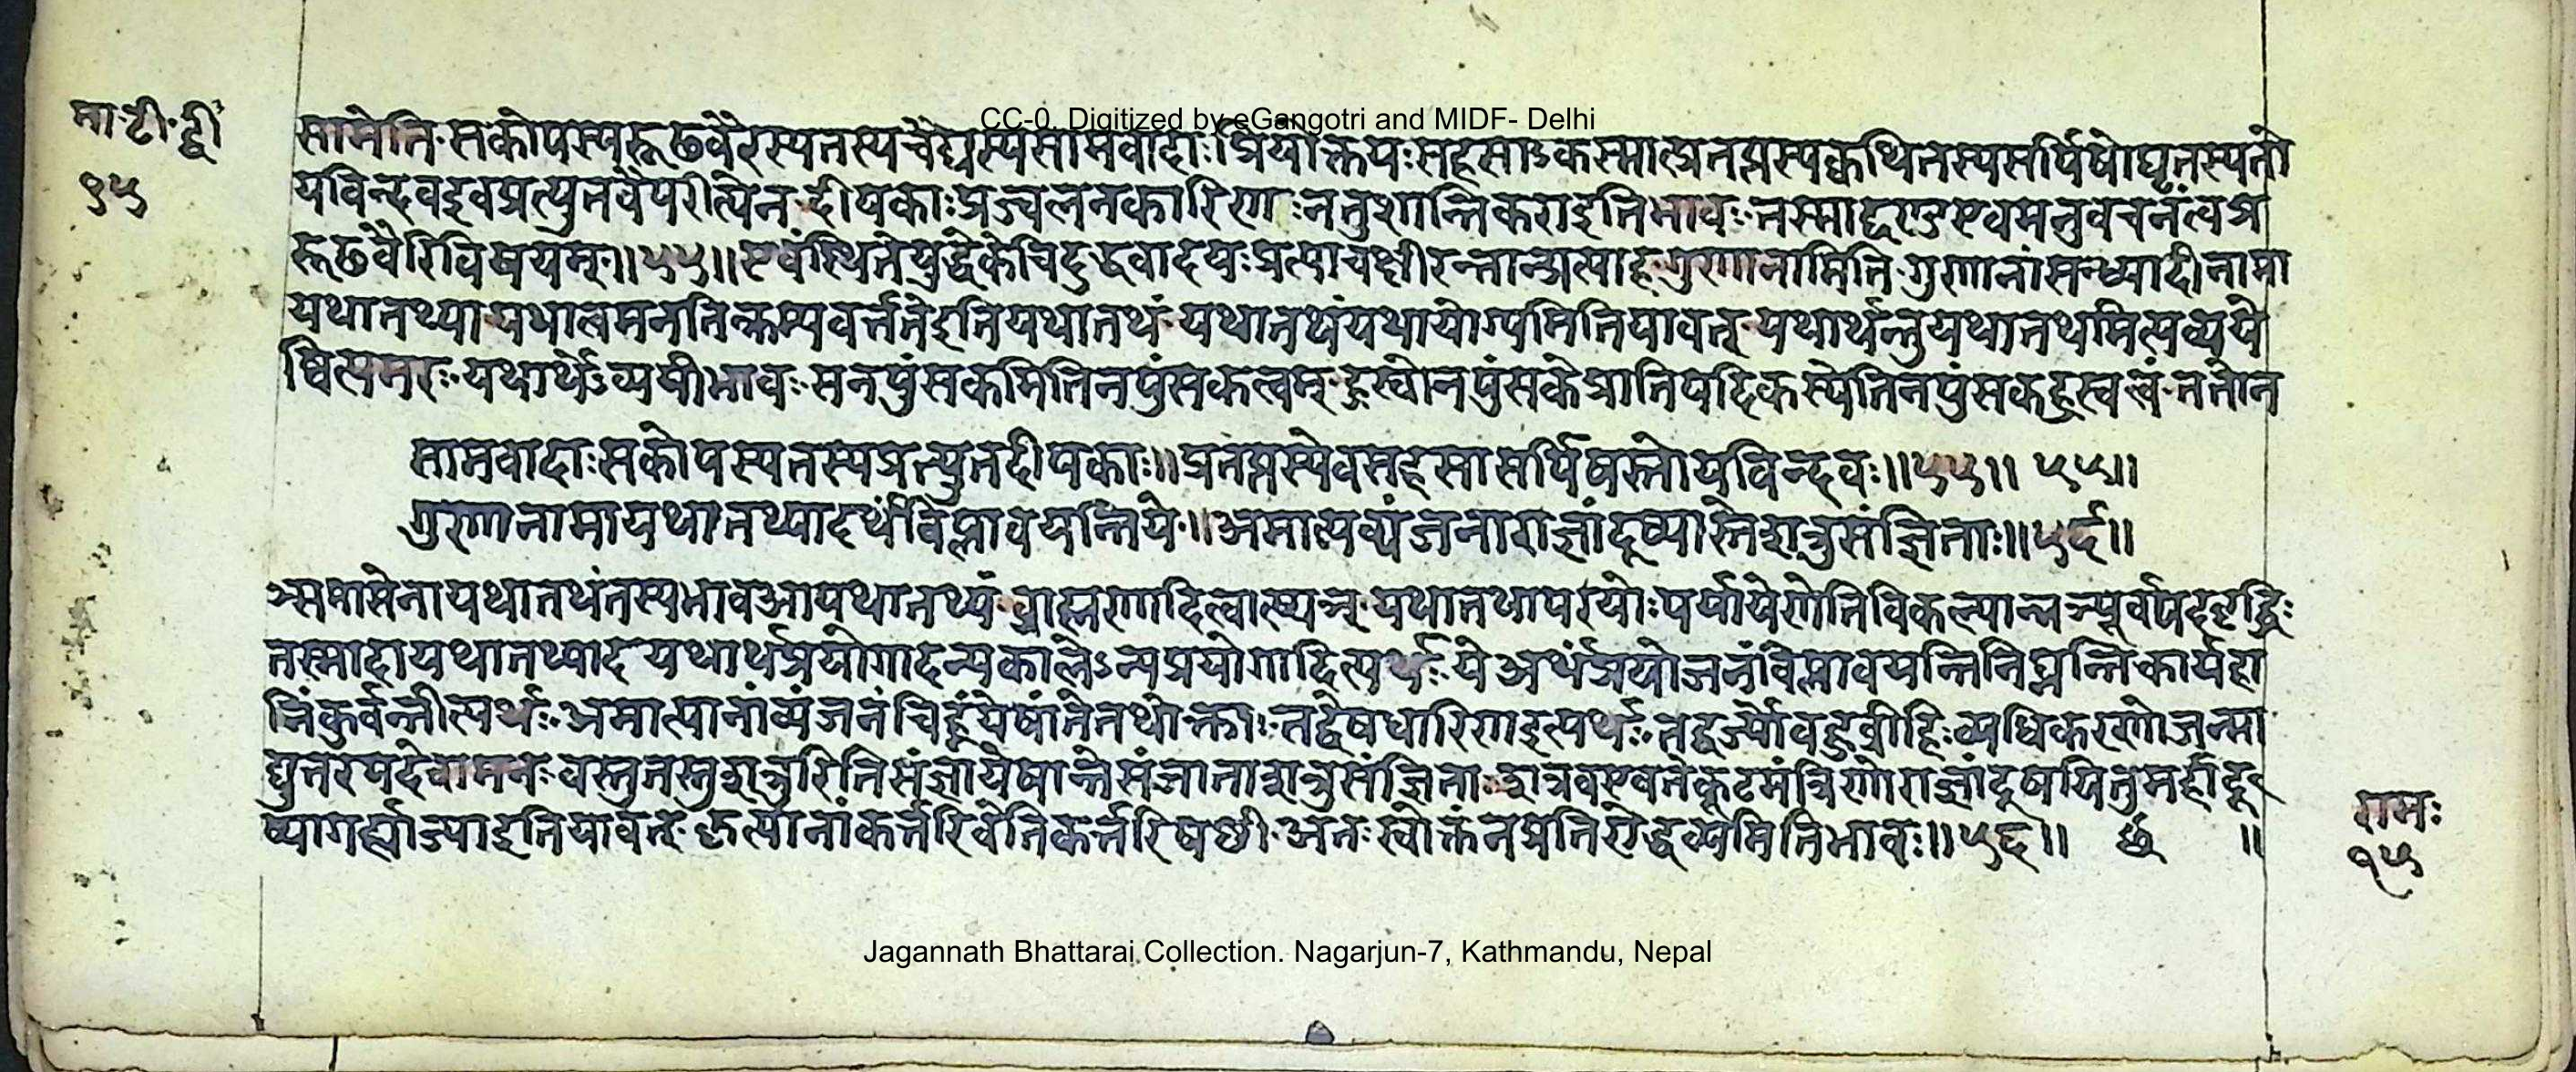 CC-0. Digitized by eGangotri and MIDF- Delhi
मा॰टी॰द्वी
१५
सामेति॰सकोपस्यरूढवैरस्यतस्यचैद्यस्यसामवादाःप्रियोक्तयःसहसाऽकस्मात्प्रतप्तस्यक्वथितस्यसर्पिषोघृतस्यतो
यविन्दवइवप्रत्युतवैपरीत्येन॰दीपकाःप्रज्वलनकारिणःनतुशान्तिकराइतिभावः॰तस्माद्दण्डएवमनुवचनंत्वप्र
रूढवैरिविषयम्॰॥५५॥एवंस्थितेयुद्धेकेचिदुद्धवादयःप्रत्याचक्षीरन्तान्प्रत्याह॰गुणानामिति॰गुणानांसन्ध्यादीनामा
यथातथ्या॰यथात्वमनतिक्रम्यवर्त्ततेइतियथातथं॰यथातथंयथायोग्यमितियावत्॰यथार्थन्तुयथातथमित्यव्यये
ष्वित्यमरः॰यथार्थेऽव्ययीभावः॰सनपुंसकमितिनपुंसकत्वम्॰ह्रस्वोनपुंसकेप्रातिपदिकस्येतिनपुंसकह्रस्वत्वं॰ततोन
सामवादाःसकोपस्यतस्यप्रत्युतदीपकाः॥प्रतप्तस्येवसहसासर्पिषस्तोयविन्दवः॥५५॥ ५५॥
गुणानामायथातथ्यादर्थंविप्लावयन्तिये॰॥अमात्यव्यंजनाराज्ञांदूष्यास्तेशत्रुसंज्ञिताः॥५६॥
ञ्समासेनायथातथंतस्यभावआयथातथ्यं॰ब्राह्मणादित्वात्ष्यञ्॰यथातथापरयोःपर्यायेणेतिविकल्पान्नञ्पूर्वपदवृद्धिः
तस्मादायथातथ्याद॰यथार्थप्रयोगादन्यकालेऽन्यप्रयोगादित्यर्थः॰येअर्थंप्रयोजनंविप्लावयन्तिनिघ्नन्तिकार्यहा
निंकुर्वन्तीत्यर्थः॰अमात्यानांव्यंजनंचिह्नंयेषांतेतथोक्ताः॰तद्वेषधारिणइत्यर्थः॰तद्वर्ज्योबहुव्रीहिःव्यधिकरणोजन्मा
द्युत्तरपदेवामनः॰वस्तुतस्तुशत्रुरितिसंज्ञायेषान्तेसंजाताशत्रुसंज्ञिता॰शत्रवएवतेकूटमंत्रिणोराज्ञांदूषयितुमर्हादू
ष्यागर्ह्यात्याज्याइतियावत्॰कृत्यानांकर्त्तरिवेतिकर्त्तरिषष्ठी॰अतःस्वोक्तंनप्रतिरोद्धव्यमितिभावः॥५६॥ छ ॥
रामः
१५
Jagannath Bhattarai Collection. Nagarjun-7, Kathmandu, Nepal